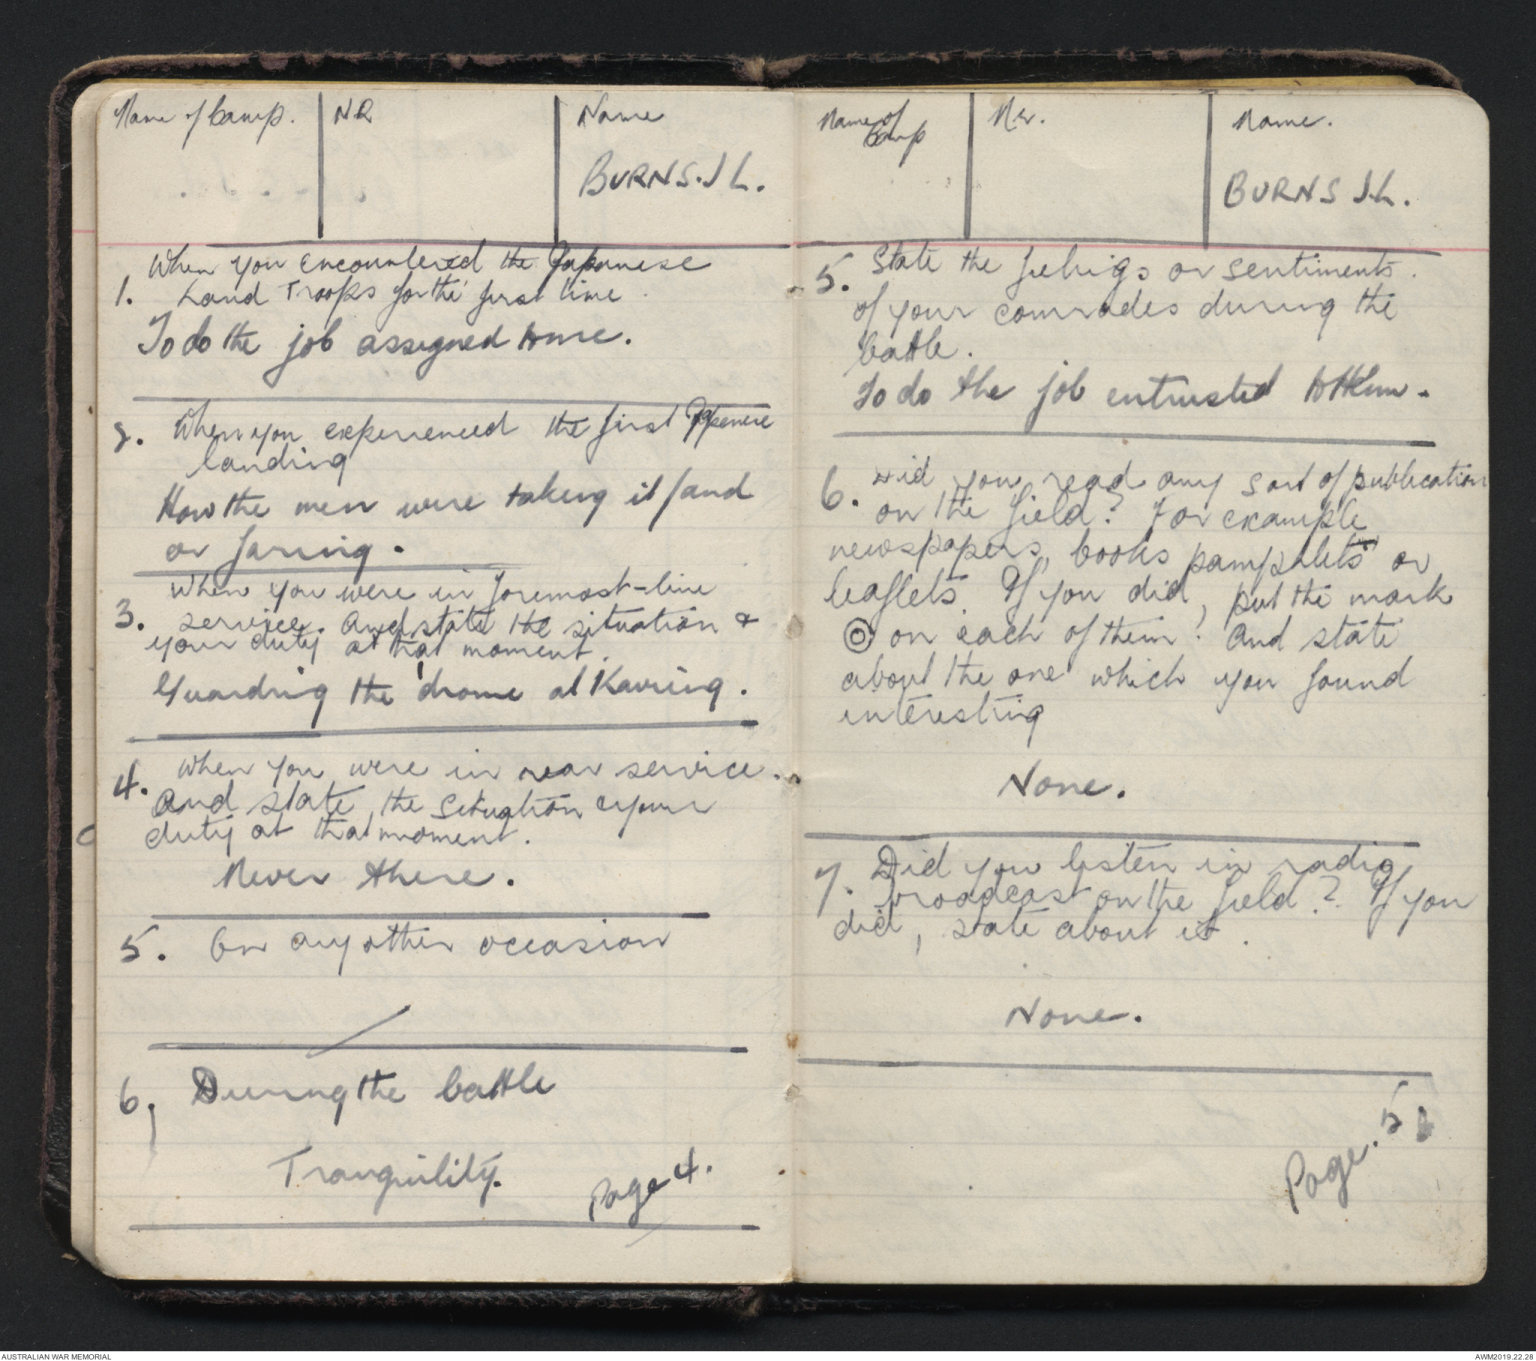 Name of Camp.
NR
Name
BURNS. J L.
1. When you encountered the Japanese
Land Troops for the first time.
To do the job assigned to me.
2. When you experienced the first Japanese
landing
How the men were taking it / and
or faring.
3. When you were in foremost-line
service. And state the situation &
your duty at that moment.
Guarding the 'drome at Kavieng.
4. When you were in rear service.
And state, the situation & your
duty at that moment.
Never there.
5. On any other occasion
6. During the battle
Tranquility.
Page 4.
Name of
Camp
Nr.
Name.
BURNS J.L.
5. State the feeligs or sentiments.
of your comrades during the
battle.
To do the job entrusted to them.
6. Did you read any sort of publication
on the field? For example
newspapers, books pamphlets or
leaflets. If you did, put the mark
◎ on each of them! And state
about the one which you found
interesting
None.
7. Did you listen in radio
broadcast on the field? If you
did, state about it.
None.
Page. 5
AUSTRALIAN WAR MEMORIAL
AWM2019.22.28